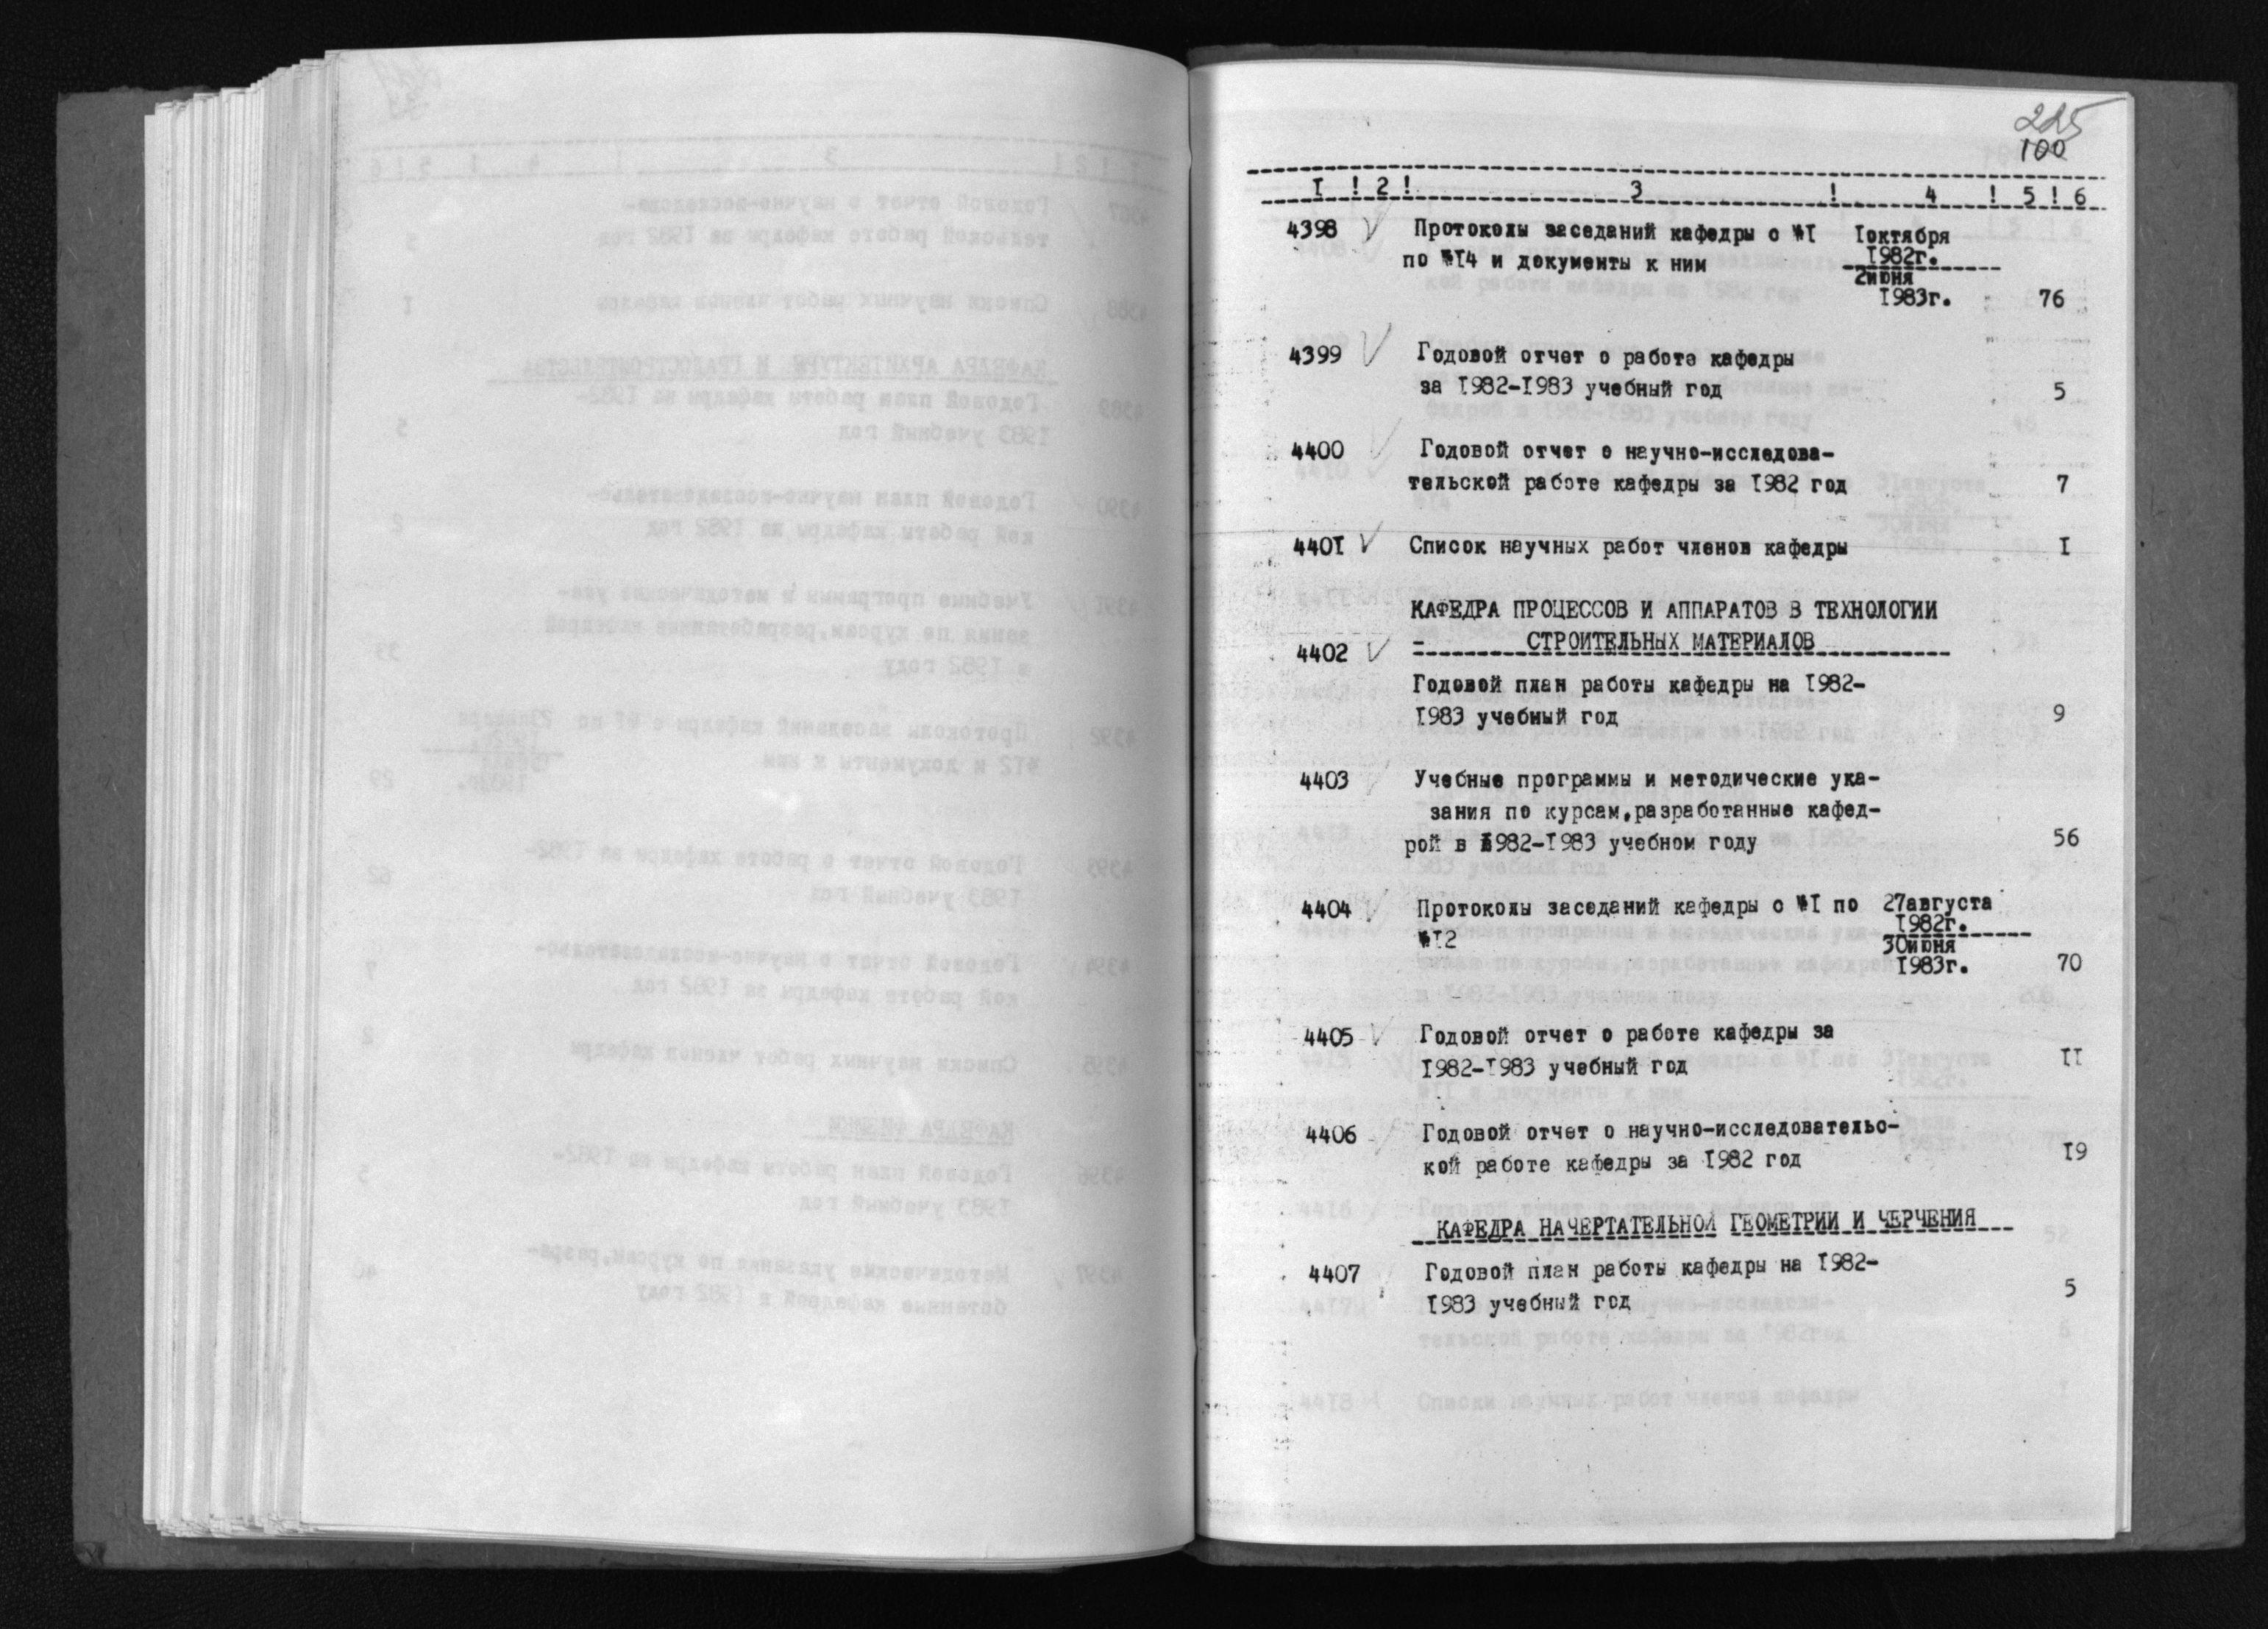 225
100
I ! 2 ! 3 ! 4 ! 5 ! 6
4398 V Протоколы заседаний кафедры с №I Iоктября
по №I4 и документы к ним I982г.
2июня
I983г. 76
4399 V Годовой отчет о работе кафедры
за I982-I983 учебный год 5
4400 V Годовой отчет о научно-исследова-
тельской работе кафедры за I982 год 7
440I V Список научных работ членов кафедры I
КАФЕДРА ПРОЦЕССОВ И АППАРАТОВ В ТЕХНОЛОГИИ
СТРОИТЕЛЬНЫХ МАТЕРИАЛОВ
4402 V
Годовой план работы кафедры на I982-
I983 учебный год 9
4403 Учебные программы и методические ука-
зания по курсам,разработанные кафед-
рой в I982-I983 учебном году 56
4404 V Протоколы заседаний кафедры с №I по 27августа
№I2 I982г.
30июня
I983г. 70
4405 V Годовой отчет о работе кафедры за
I982-I983 учебный год II
4406 Годовой отчет о научно-исследовательс-
кой работе кафедры за I982 год I9
КАФЕДРА НАЧЕРТАТЕЛЬНОЙ ГЕОМЕТРИИ И ЧЕРЧЕНИЯ
4407 Годовой план работы кафедры на I982-
I983 учебный год 5